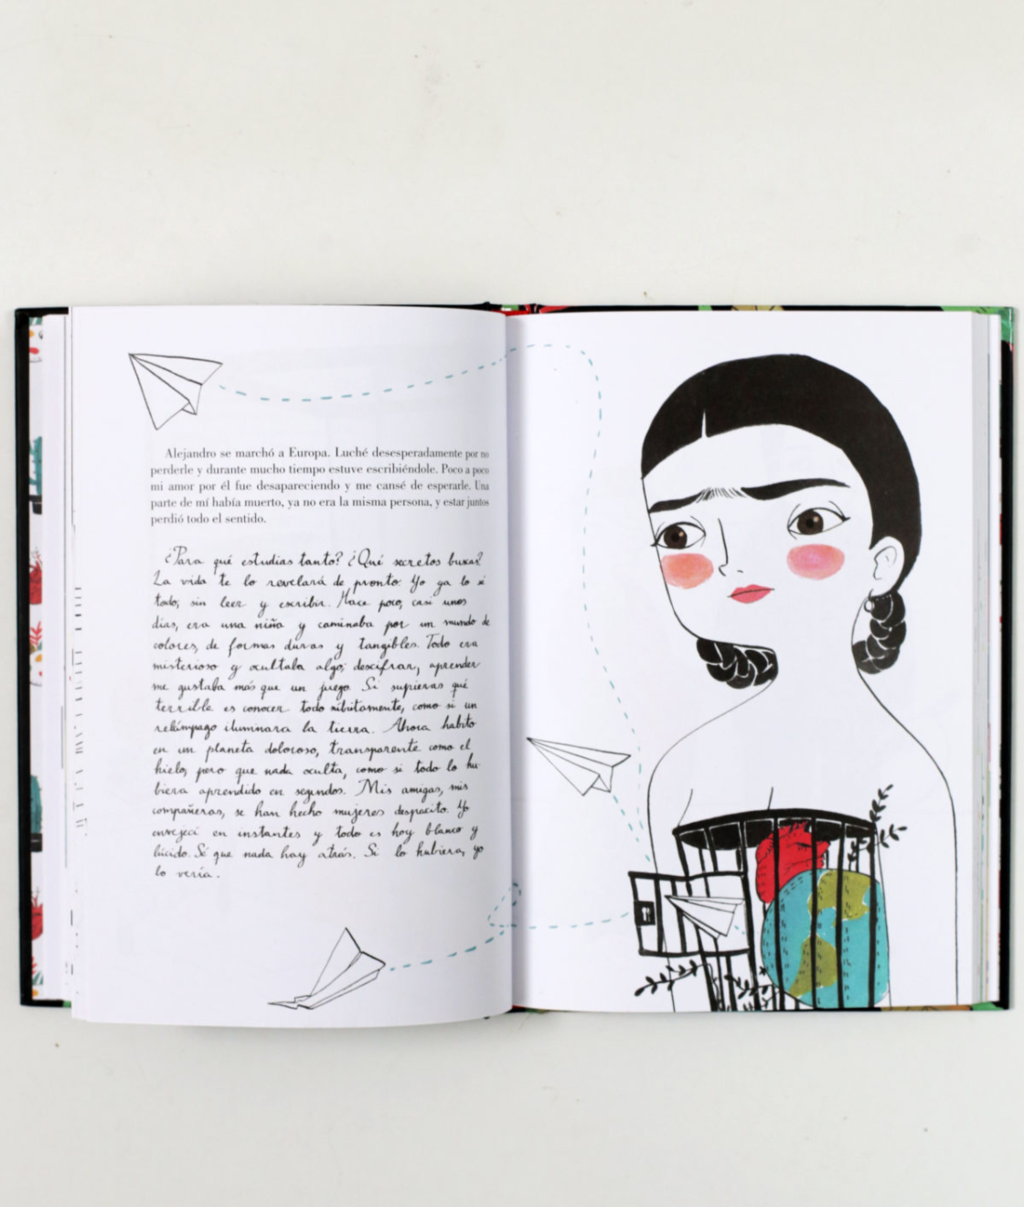 Alejandro se marchó a Europa. Luché desesperadamente por no
perderle y durante mucho tiempo estuve escribiéndole. Poco a poco
mi amor por él fue desapareciendo y me cansé de esperarle. Una
parte de mí había muerto, ya no era la misma persona, y estar juntos
perdió todo el sentido.
¿Para qué estudias tanto? ¿Qué secretos buscas?
La vida te lo revelará de pronto. Yo ya lo sé
todo, sin leer y escribir. Hace poco, casi unos
días, era una niña y caminaba por un mundo de
colores, de formas duras y tangibles. Todo era
misterioso y ocultaba algo; descifrar, aprender
me gustaba más que un juego. Si supieras qué
terrible es conocer todo súbitamente, como si un
relámpago iluminara la tierra. Ahora habito
en un planeta doloroso, transparente como el
hielo, pero que nada oculta, como si todo lo hu-
biera aprendido en segundos. Mis amigas, mis
compañeras, se han hecho mujeres despacito. Yo
envejecí en instantes y todo es hoy blanco y
lúcido. Sé que nada hay atrás. Si lo hubiera, yo
lo vería.